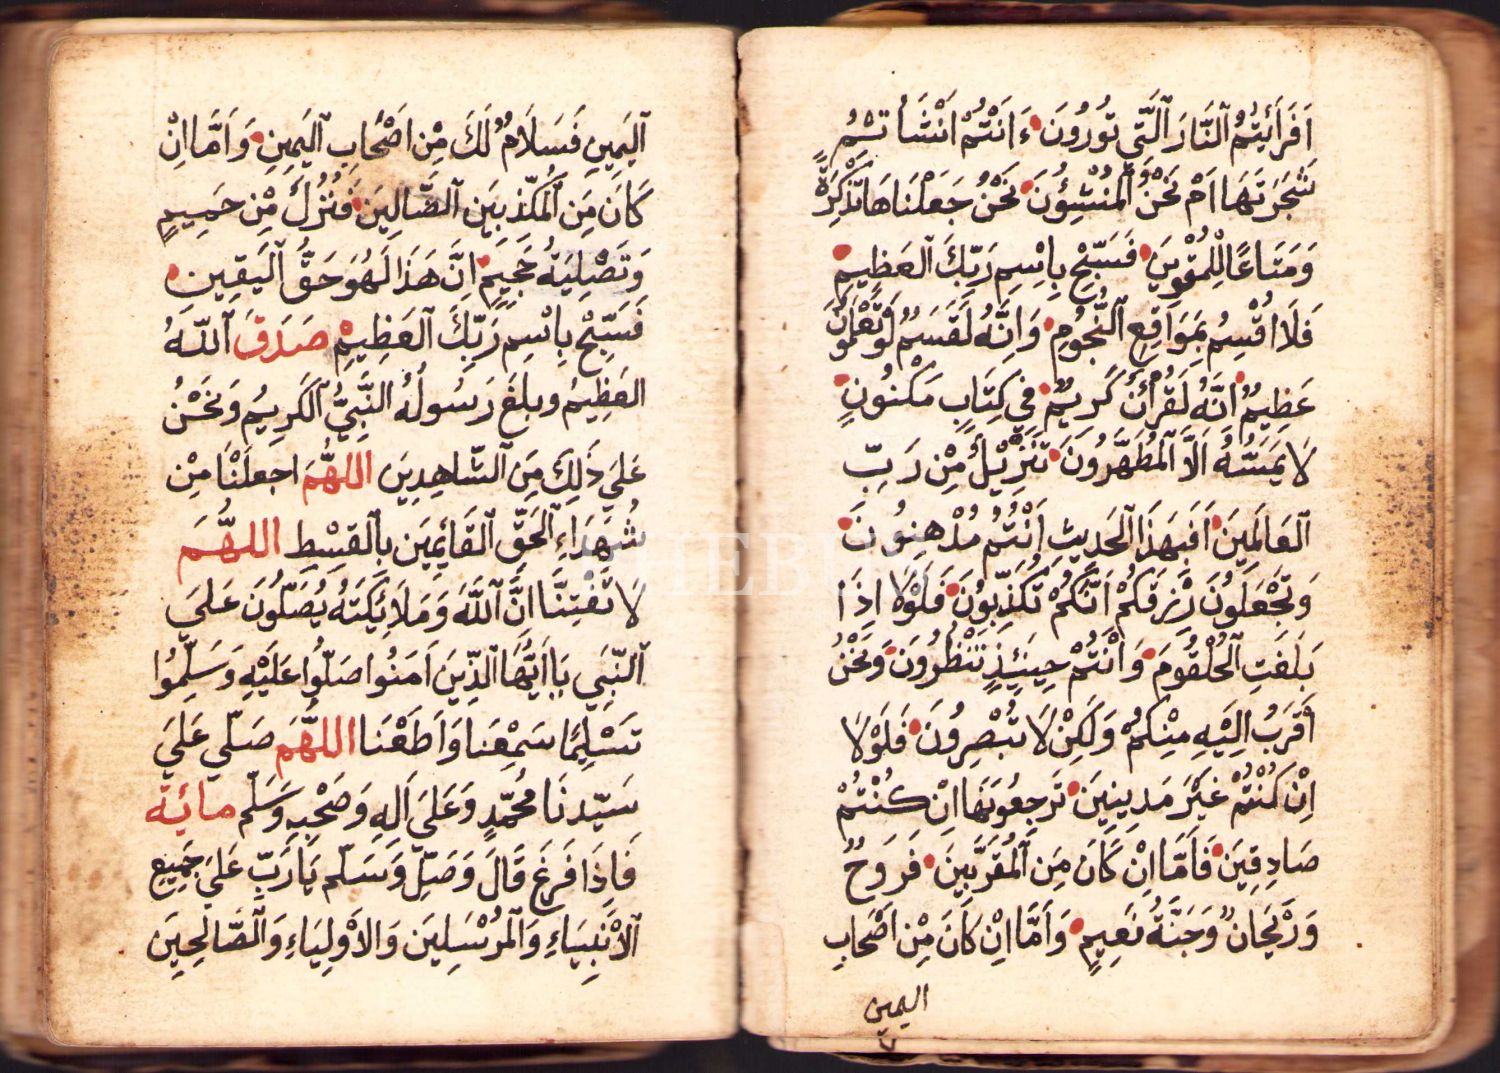 اَفَرَاَيْتُمُ ٱلنَّارَ ٱلَّتِي تُورُونَ ءَاَنْتُمْ اَنْشَأْتُمْ
شَجَرَتَهَا اَمْ نَحْنُ ٱلْمُنْشِئُونَ نَحْنُ جَعَلْنَاهَا تَذْكِرَةً
وَمَتَاعًا لِلْمُقْوِينَ فَسَبِّحْ بِاسْمِ رَبِّكَ ٱلعَظِيمِ
فَلَا اُقْسِمُ بِمَوَاقِعِ ٱلنُّجُومِ وَاِنَّهُ لَقَسَمٌ لَوْ تَعْلَمُونَ
عَظِيمٌ اِنَّهُ لَقُرْاٰنٌ كَرِيمٌ فِي كِتَابٍ مَكْنُونٍ
لَا يَمَسُّهُ اِلَّا ٱلْمُطَهَّرُونَ تَنْزِيْلٌ مِنْ رَبِّ
ٱلعَالَمِينَ اَفَبِهَذَا ٱلحَدِيثِ اَنْتُمْ مُدْهِنُونَ
وَتَجْعَلُونَ رِزْقَكُمْ اَنَّكُمْ تُكَذِّبُونَ فَلَوْلَا اِذَا
بَلَغَتِ ٱلْحُلْقُومَ وَاَنْتُمْ حِينَئِذٍ تَنْظُرُونَ وَنَحْنُ
اَقْرَبُ اِلَيْهِ مِنْكُمْ وَلَكِنْ لَا تُبْصِرُونَ فَلَوْلَا
اِنْ كُنْتُمْ غَيْرَ مَدِينِينَ تَرْجِعُونَهَا اِنْ كُنْتُمْ
صَادِقِينَ فَاَمَّا اِنْ كَانَ مِنَ ٱلْمُقَرَّبِينَ فَرَوْحٌ
وَرَيْحَانٌ وَجَنَّةُ نَعِيمٍ وَاَمَّا اِنْ كَانَ مِنْ اَصْحَابِ
اليمين
ٱليَمِينِ فَسَلَامٌ لَكَ مِنْ اَصْحَابِ ٱليَمِينِ وَاَمَّا اِنْ
كَانَ مِنَ ٱلْمُكَذِّبِينَ ٱلضَّالِينَ فَنُزُلٌ مِنْ حَمِيمٍ
وَتَصْلِيَةُ جَحِيمٍ اِنَّ هَذَا لَهُوَ حَقُّ ٱليَقِينِ
فَسَبِّحْ بِاسْمِ رَبِّكَ ٱلعَظِيمْ صَدَقَ ٱللّٰهُ
العَظِيمُ وبلغَ رَسُولُهُ النَّبِيُّ ٱلكَرِيمُ وَنَحْنُ
عَلَي ذَلِكَ مِنَ ٱلشَّاهِدِينَ اللهُمَّ اجعَلْنَا مِنْ
شُهَدَاءِ ٱلحَقِّ ٱلقَائِمِينَ بِالْقِسْطِ اللهُمَّ
لَا تَفْتِنَّا اِنَّ ٱللَّهَ وَمَلَائِكَتَهُ يُصَلّونَ عَلَي
ٱلنَّبِي يَا اَيُّهَا الَّذِينَ اَمَنُوا صَلّوا عَلَيْهِ وَسَلِّمُوا
تَسْلِيمًا سَمِعْنَا وَاَطَعْنَا اللهُمَّ صَلّي عَلَي
سَيّدِنَا مُحَمَّدٍ وَعَلَي اَلِهِ وَصَحْبِهِ وَسَلّم مائة
فَاِذَا فَرغَ قَالَ وَصَلِّ وَسَلّم يَا رَبِّ عَلَي جَمِيعِ
ٱلاَنْبِيَاءِ وَٱلمُرْسَلِينَ وَالاَوْلِيَاءِ وَٱلصَّالِحِينَ